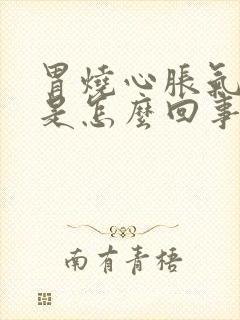 胃燒心脹氣
是怎麼回事
南有青梧